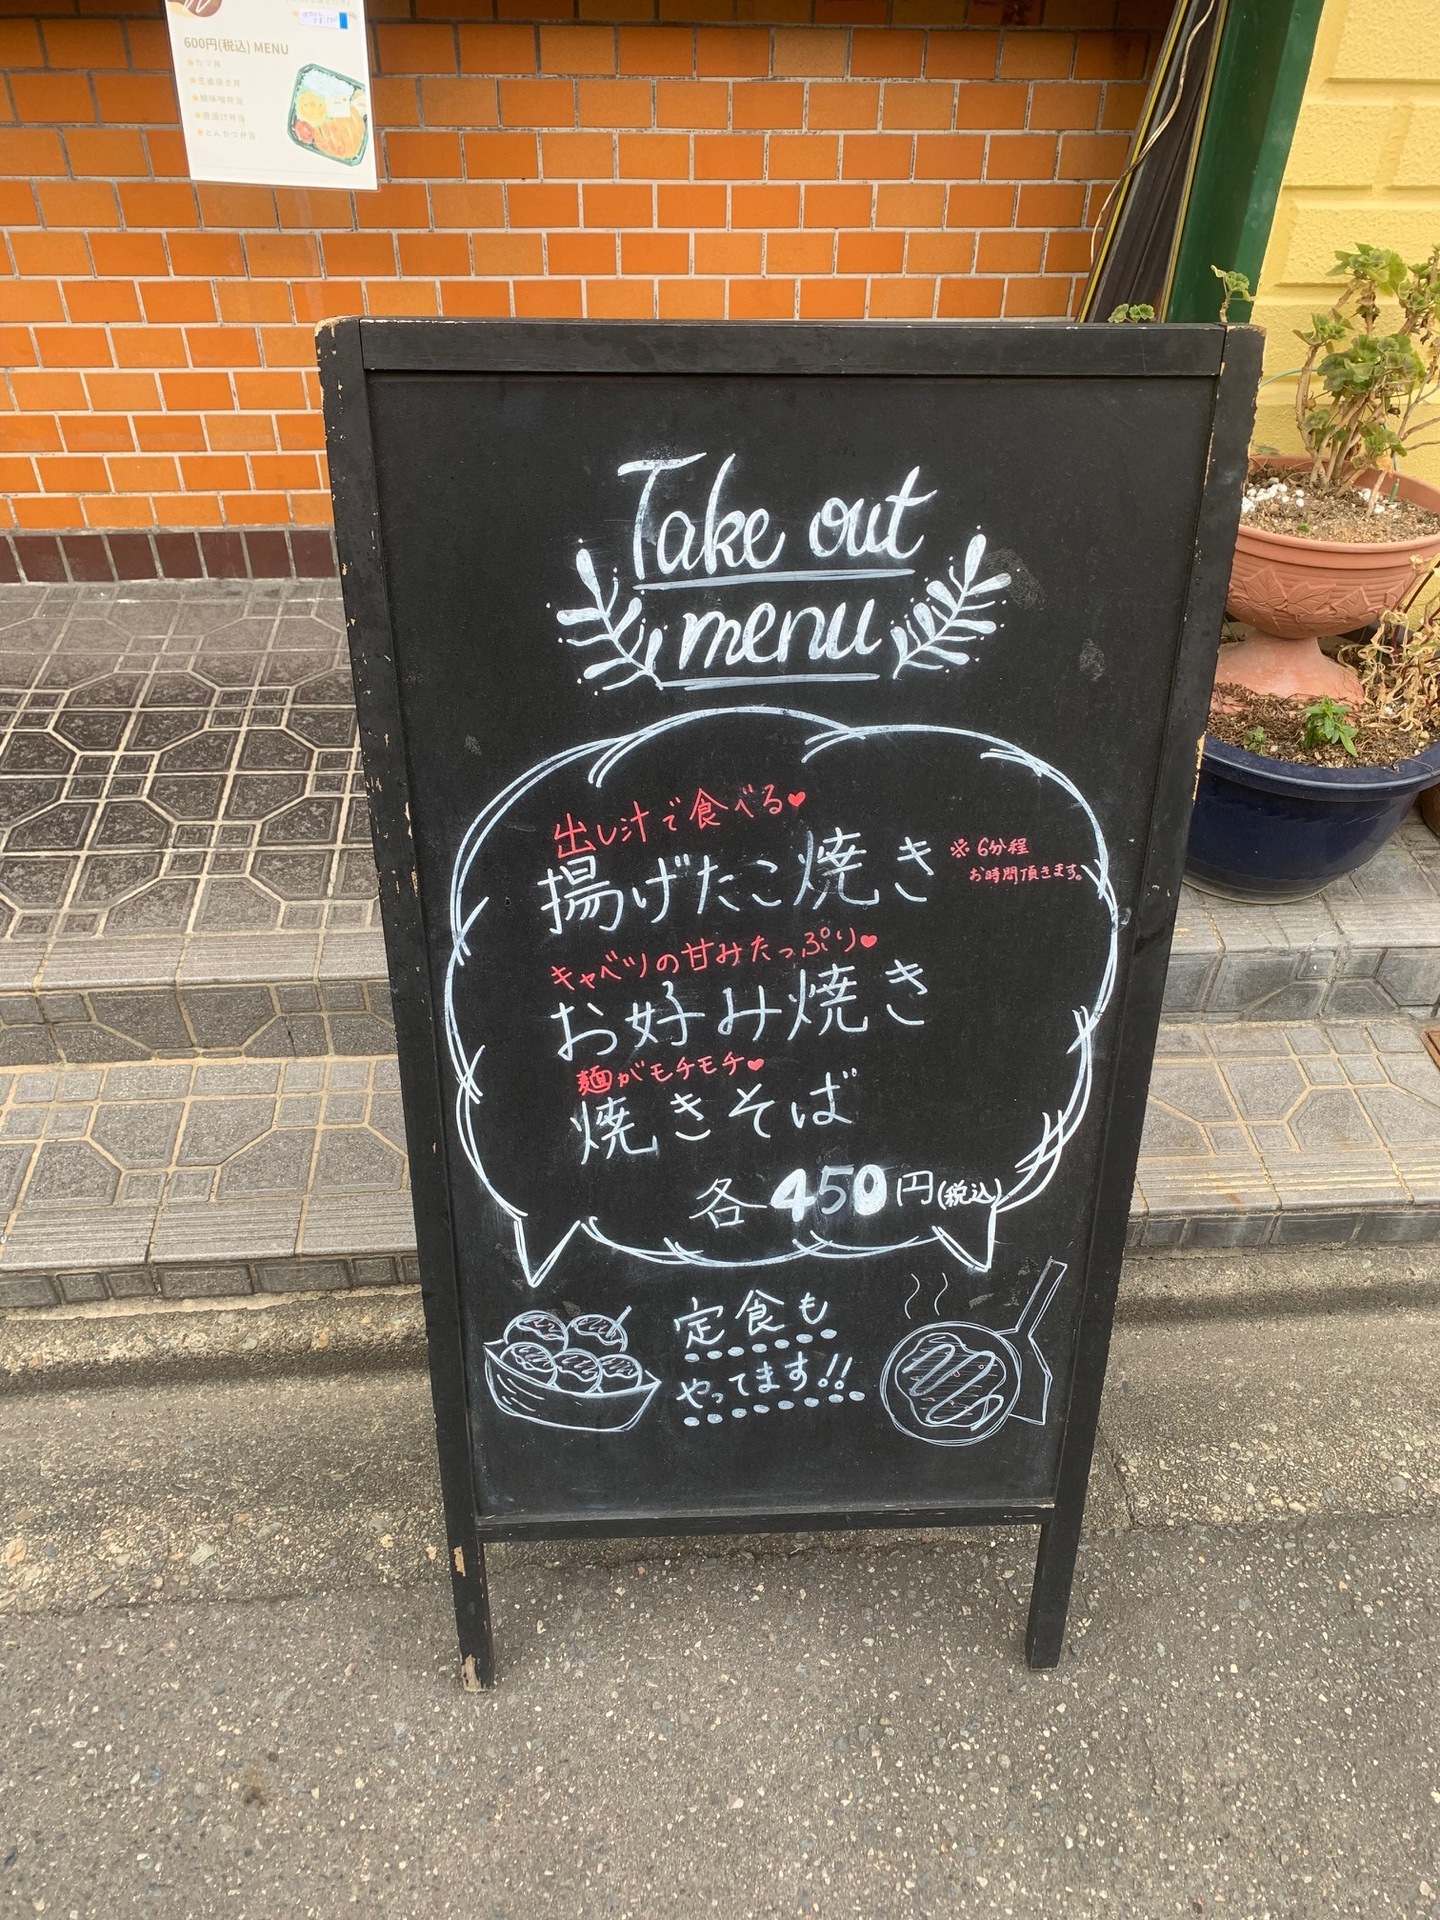 600円(税込) MENU
カツ丼
生姜焼き丼
鯖味噌弁当
唐揚げ弁当
とんかつ弁当
Take out
menu
出し汁で食べる♥
揚げたこ焼き ※6分程
お時間頂きます。
キャベツの甘みたっぷり♥
お好み焼き
麺がモチモチ♥
焼きそば
各450円(税込)
定食も
やってます!!